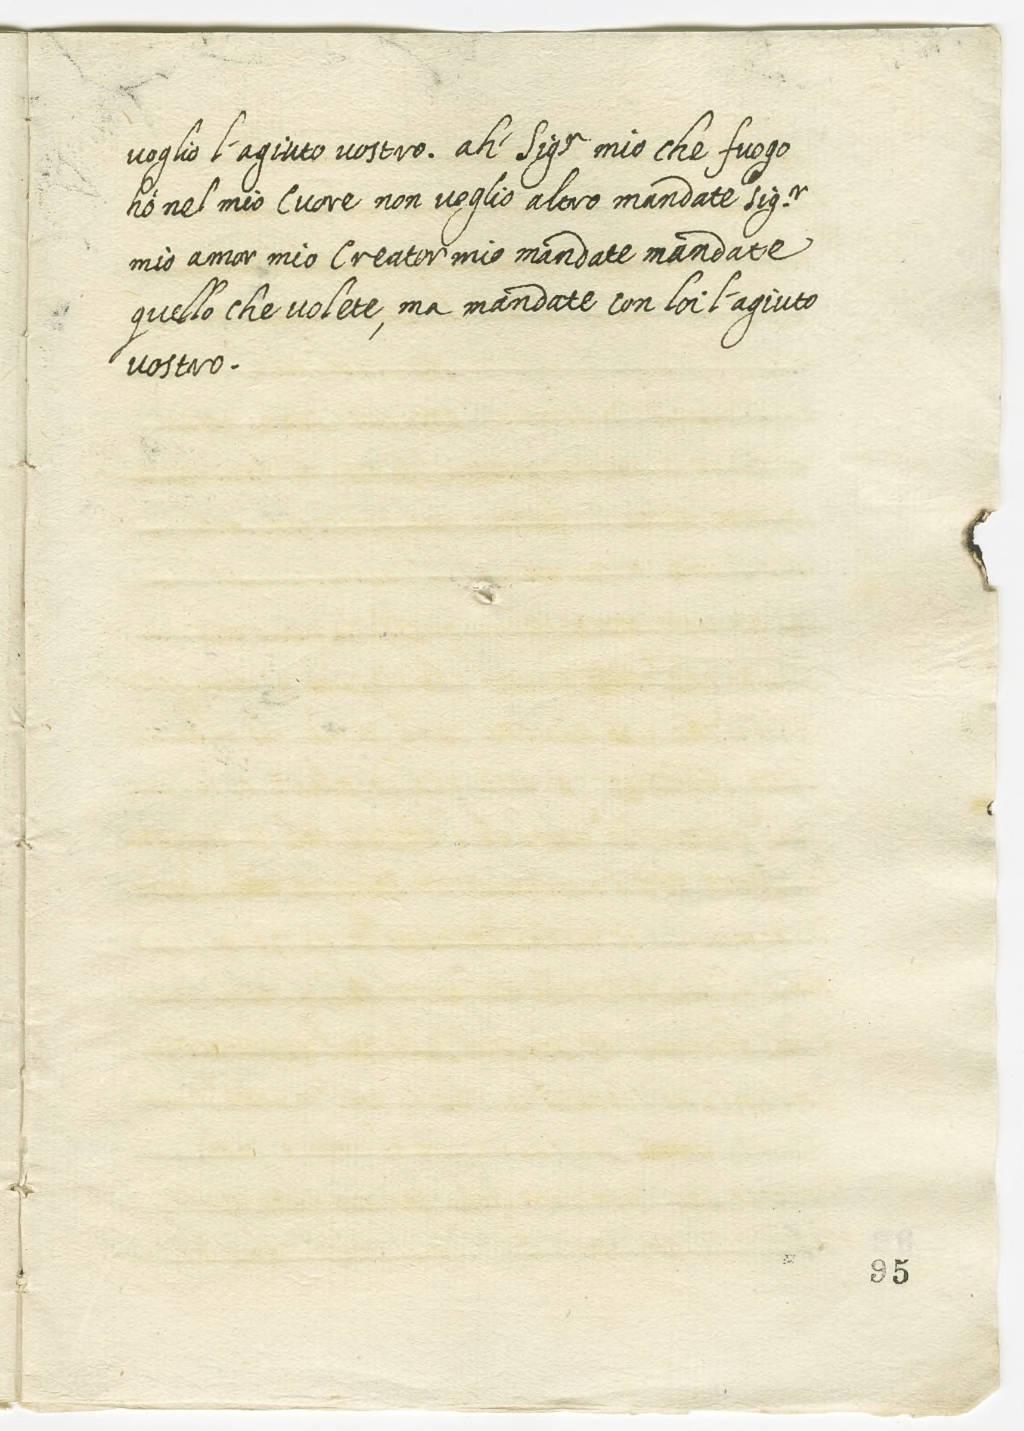 uoglio l'agiuto uostro. ah' Sig.r mio che fuogo
hò nel mio Cuore non uoglio altro mandate Sig.r
mio amor mio Creator mio mandate mandate
quello che uolete, ma mandate con loi l'agiuto
uostro.
95